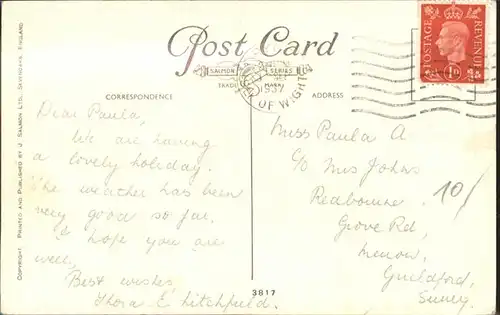 Post Card
SALMON SERIES
TRADE MARK
CORRESPONDENCE
ADDRESS
1937
OF WIGHT
POSTAGE
REVENUE
1D
Dear Paula,
We are having
a lovely holiday.
The weather has been
very good so far.
I hope you are
well.
Best wishes,
Thora E Litchfield.
Miss Paula A
C/o Mrs Johns
Redbourne
Grove Rd,
Merrow,
Guildford,
Surrey.
10/
3817
COPYRIGHT. PRINTED AND PUBLISHED BY J. SALMON LTD., SEVENOAKS, ENGLAND